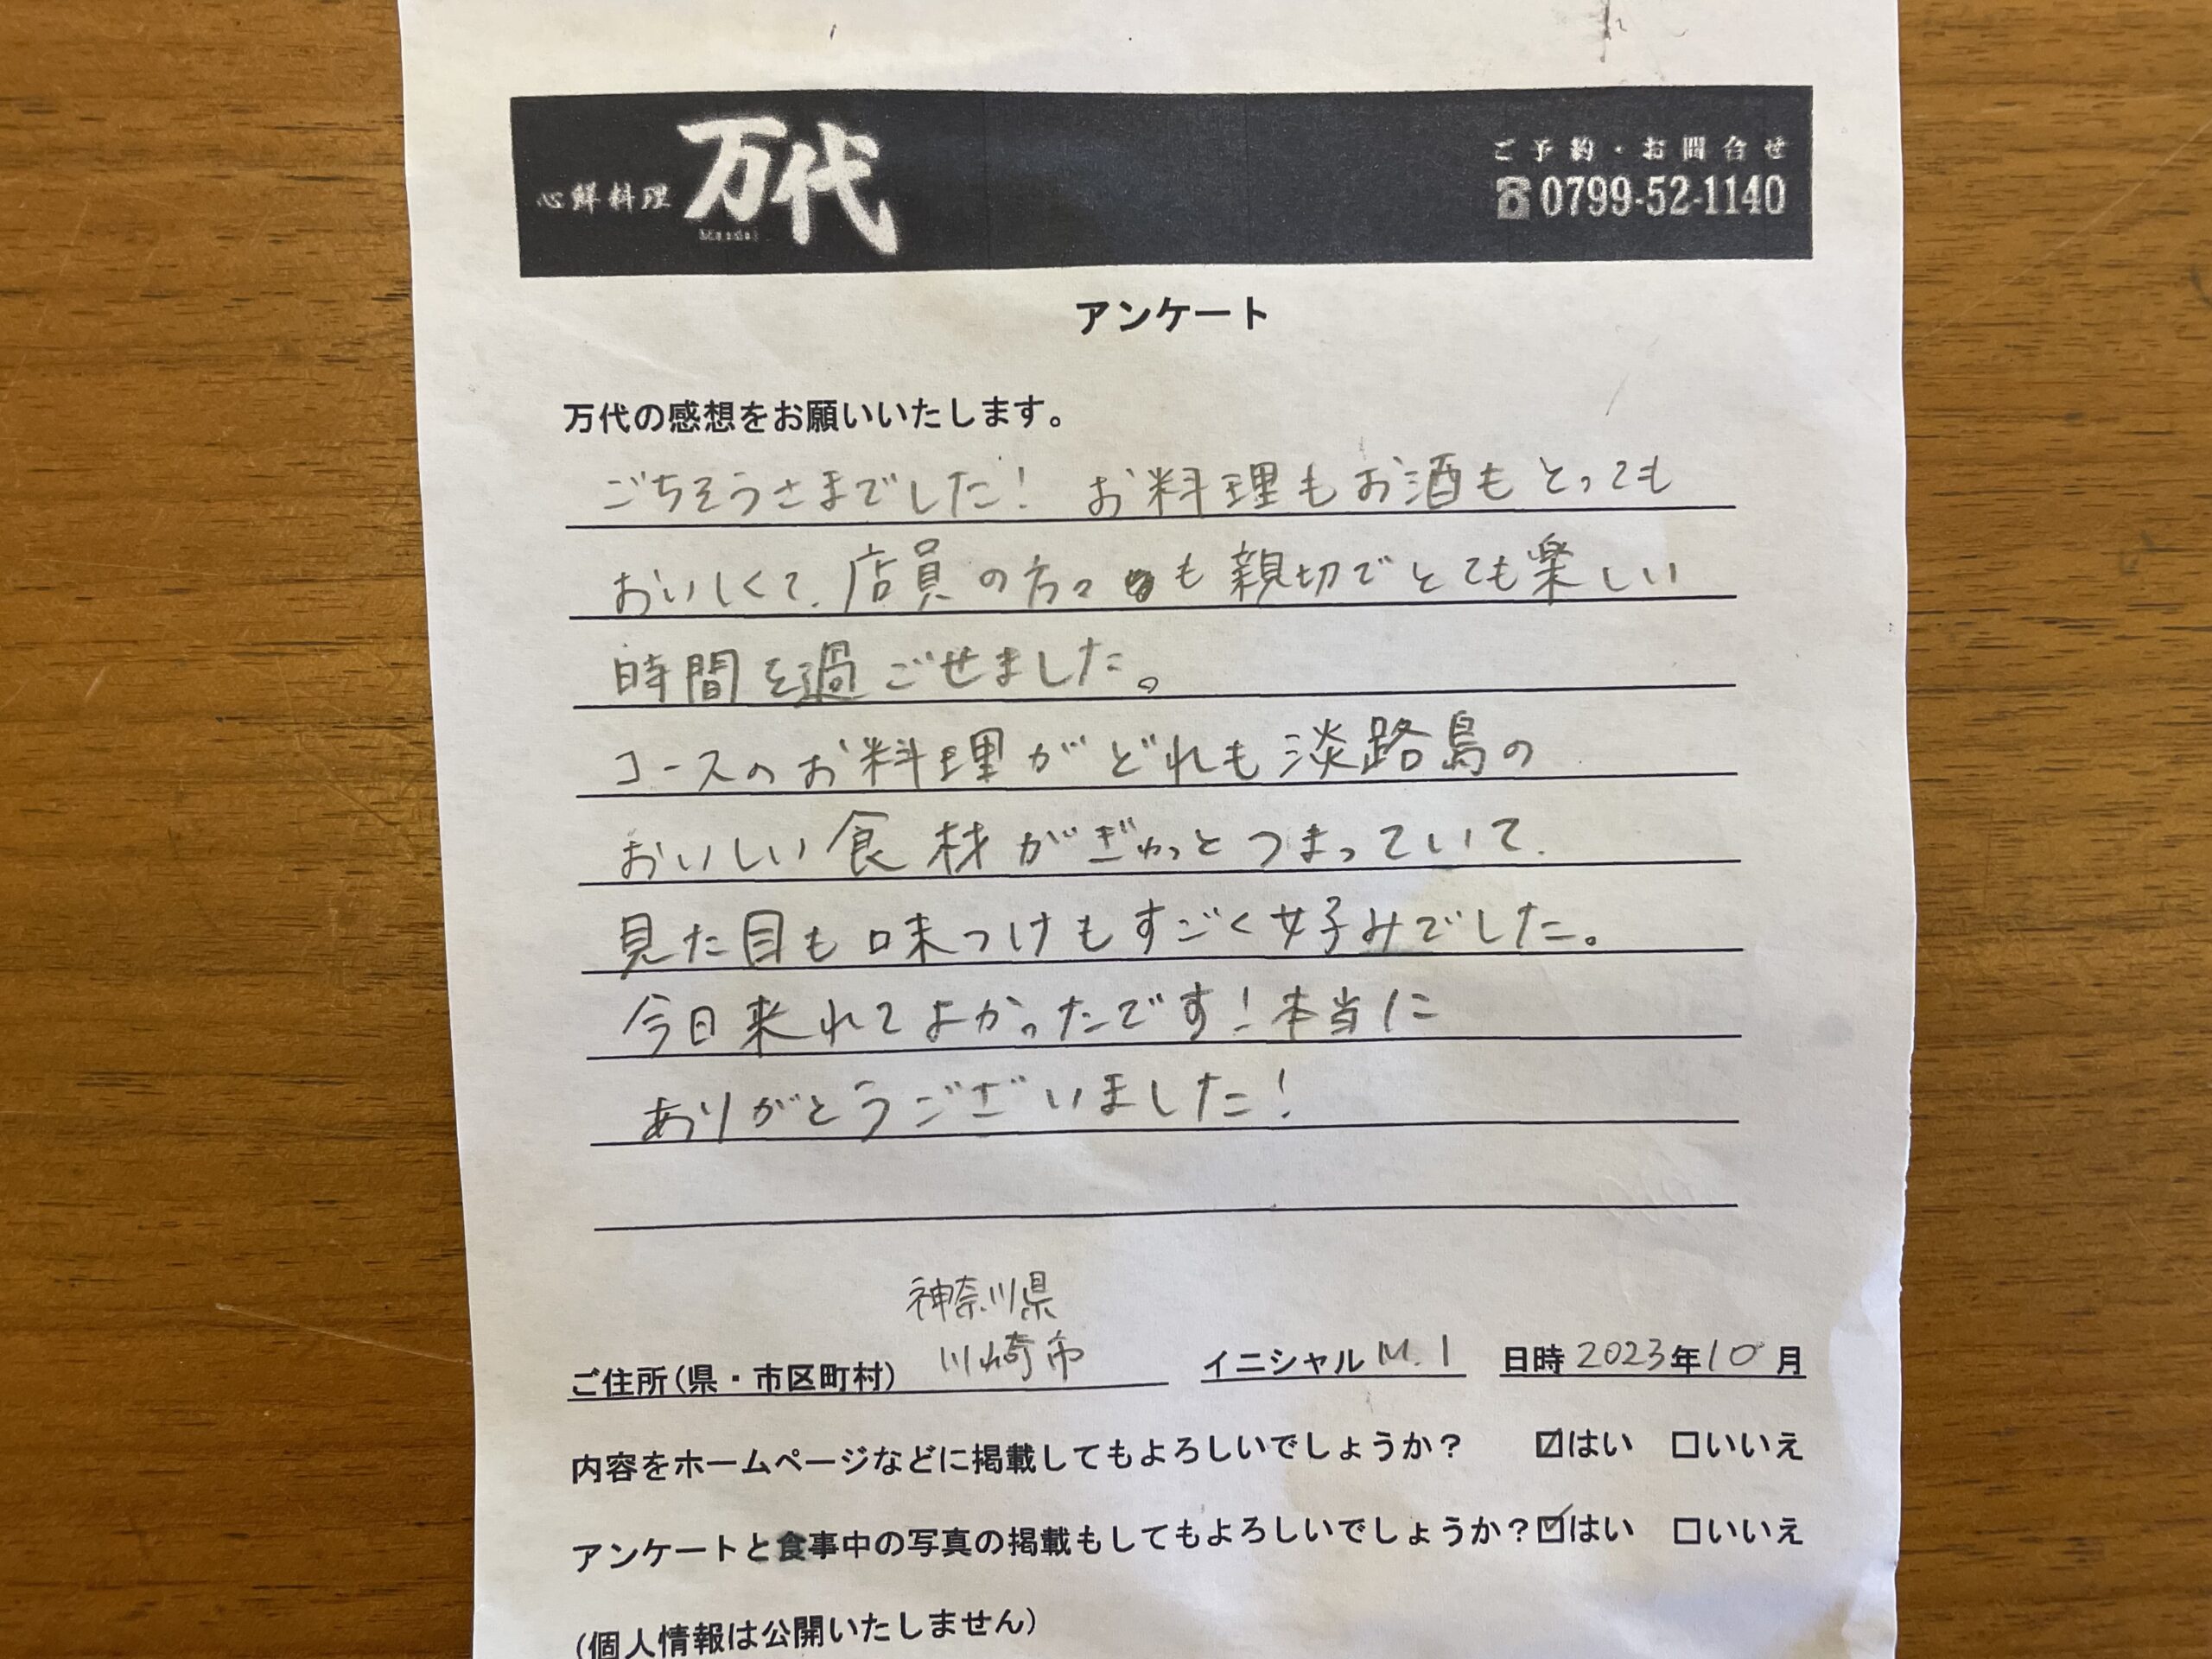 心鮮料理 万代
ご予約・お問合せ
☎0799-52-1140
アンケート
万代の感想をお願いいたします。
ごちそうさまでした! お料理もお酒もとっても
おいしくて、店員の方々も親切でとても楽しい
時間を過ごせました。
コースのお料理がどれも淡路島の
おいしい食材がぎゅっとつまっていて、
見た目も味つけもすごく好みでした。
今日来れてよかったです!本当に
ありがとうございました!
神奈川県
川崎市
ご住所(県・市区町村) イニシャル M.I 日時 2023年10月
内容をホームページなどに掲載してもよろしいでしょうか? ☑はい □いいえ
アンケートと食事中の写真の掲載もしてもよろしいでしょうか?☑はい □いいえ
(個人情報は公開いたしません)